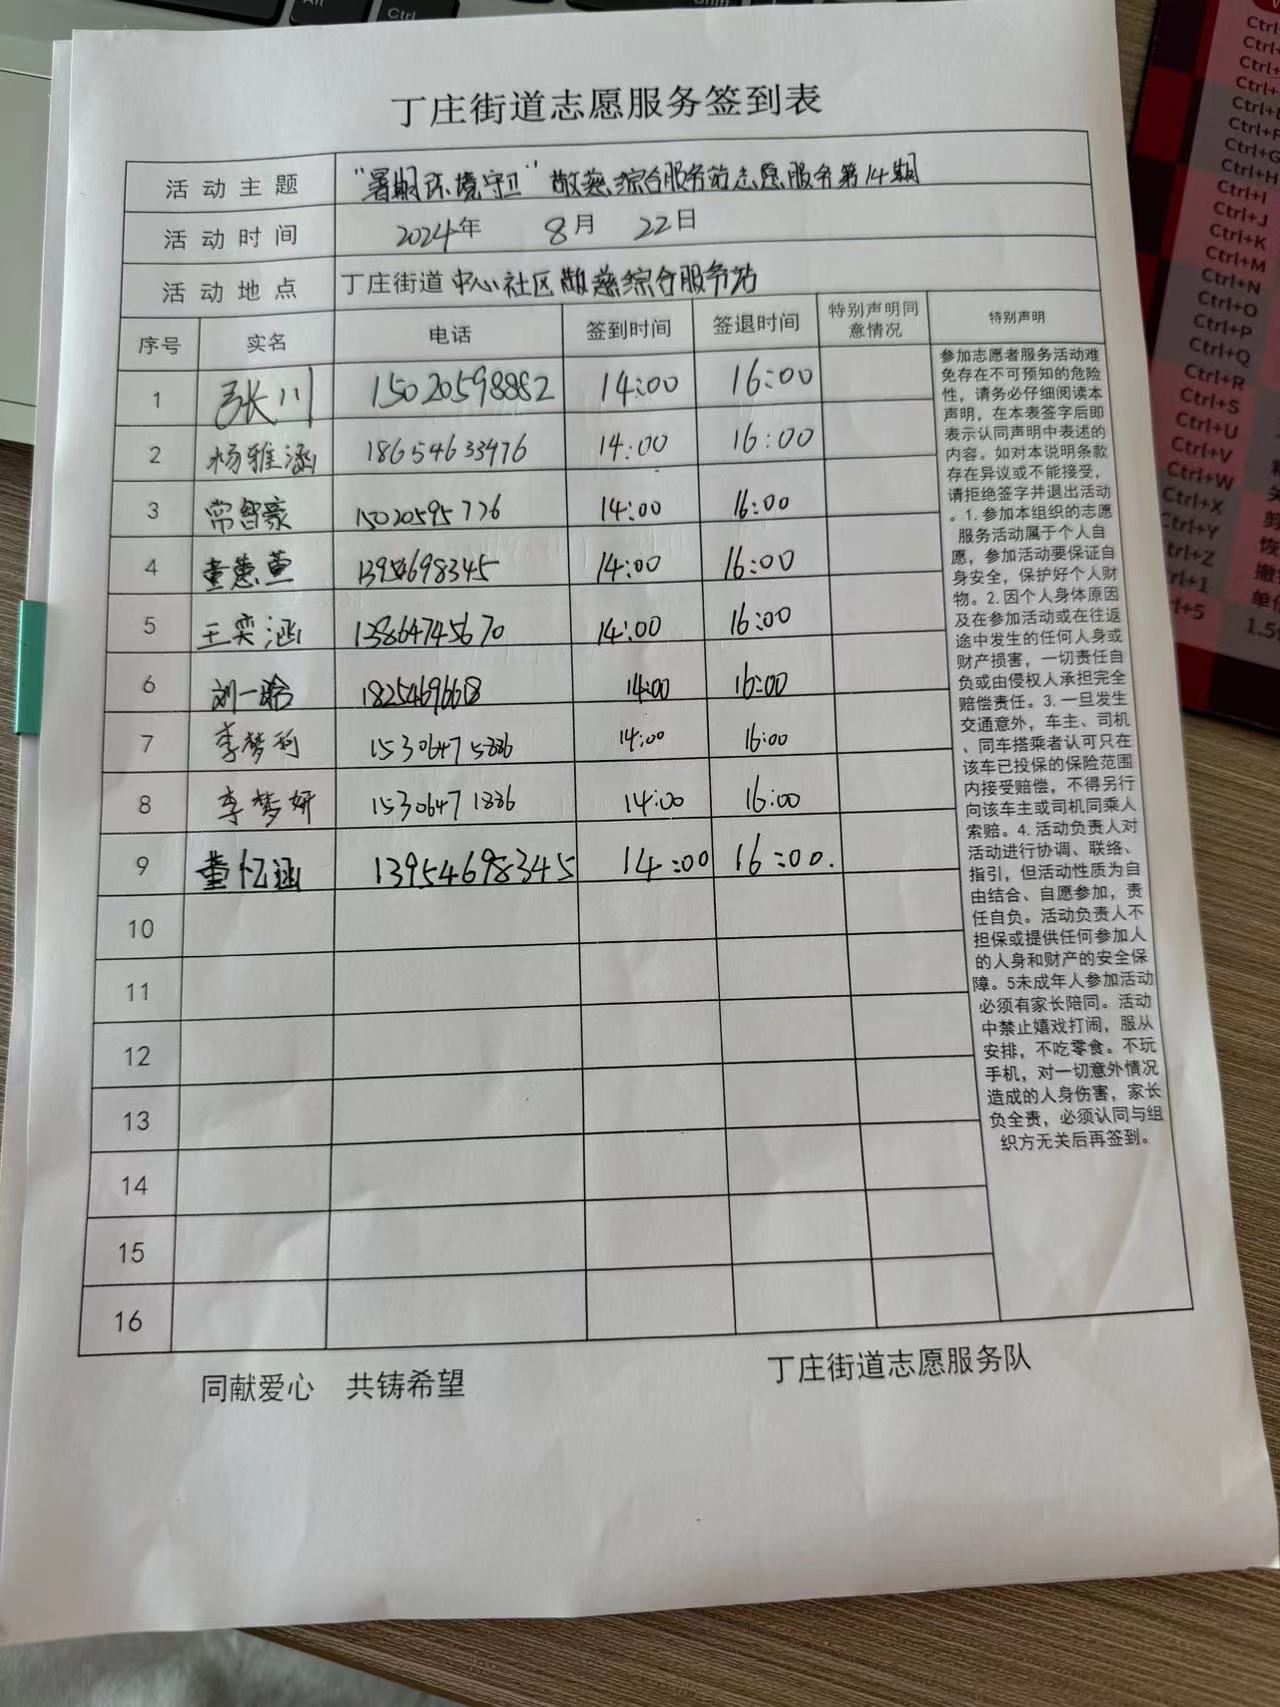 丁庄街道志愿服务签到表
活动主题 "暑期环境守卫"敬慈综合服务站志愿服务第14期
活动时间 2024年 8月 22日
活动地点 丁庄街道中心社区敬慈综合服务站
序号 实名 电话 签到时间 签退时间 特别声明同意情况 特别声明
1 张川 15020598882 14:00 16:00
2 杨雅涵 18654633476 14:00 16:00
3 常智豪 15020595776 14:00 16:00
4 董蕙萱 13954698345 14:00 16:00
5 王奕涵 13864745670 14:00 16:00
6 刘一晗 14:00 16:00
7 李梦 15306475886 14:00 16:00
8 李梦妍 15306471886 14:00 16:00
9 董忆涵 13954698345 14:00 16:00.
10
11
12
13
14
15
16
参加志愿者服务活动难
免存在不可预知的危险
性，请务必仔细阅读本
声明，在本表签字后即
表示认同声明中表述的
内容。如对本说明条款
存在异议或不能接受，
请拒绝签字并退出活动
。1.参加本组织的志愿
服务活动属于个人自
愿，参加活动要保证自
身安全，保护好个人财
物。2.因个人身体原因
及在参加活动或在往返
途中发生的任何人身或
财产损害，一切责任自
负或由侵权人承担完全
赔偿责任。3.一旦发生
交通意外，车主、司机
、同车搭乘者认可只在
该车已投保的保险范围
内接受赔偿，不得另行
向该车主或司机同乘人
索赔。4.活动负责人对
活动进行协调、联络、
指引，但活动性质为自
由结合、自愿参加，责
任自负。活动负责人不
担保或提供任何参加人
的人身和财产的安全保
障。5未成年人参加活动
必须有家长陪同。活动
中禁止嬉戏打闹，服从
安排，不吃零食。不玩
手机，对一切意外情况
造成的人身伤害，家长
负全责，必须认同与组
织方无关后再签到。
同献爱心 共铸希望
丁庄街道志愿服务队
Alt
Ctrl
Shift
Ctrl+G
Ctrl+H
Ctrl+I
Ctrl+J
Ctrl+K
Ctrl+M
Ctrl+N
Ctrl+O
Ctrl+P
Ctrl+Q
Ctrl+R
Ctrl+S
Ctrl+U
Ctrl+V
Ctrl+W
Ctrl+X
Ctrl+Y
Ctrl+Z
Ctrl+1
1.5